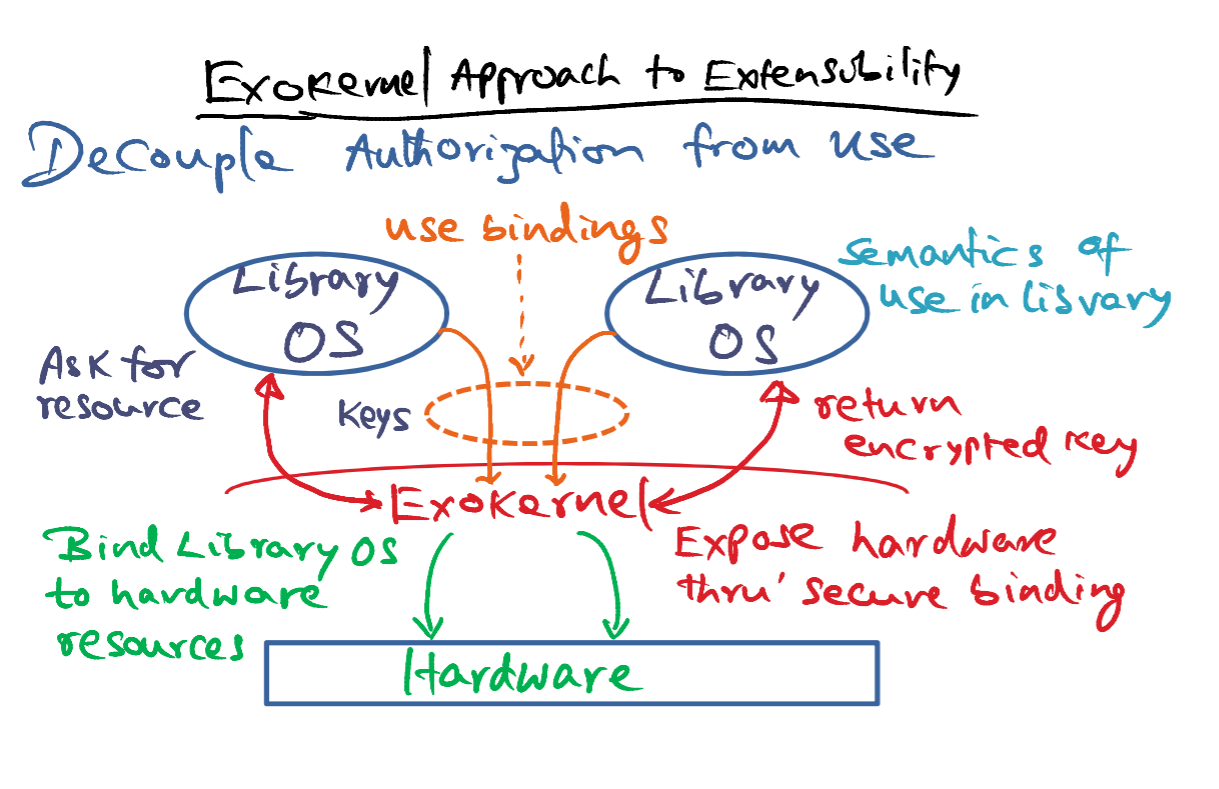 Exokernel Approach to Extensibility
Decouple Authorization from use
use bindings
Library
OS
Library
OS
semantics of
use in library
Ask for
resource
Keys
return
encrypted key
Exokernel
Bind Library OS
to hardware
resources
Expose hardware
thru' secure binding
Hardware